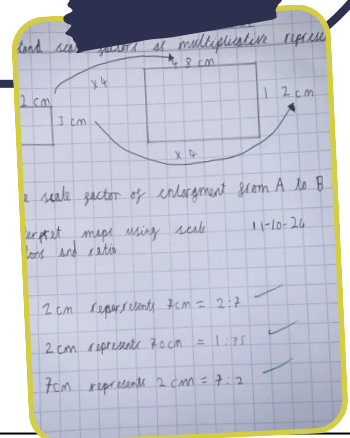 scale factors as multiplicative
48 cm
x4
2 cm
3 cm
12 cm
x4
scale factor of enlargment from A to B
maps using scale 11-10-24
and ratio
2cm reperresents 7cm = 2:7
2cm represents 70cm = 1:35
7cm represents 2cm = 7:2